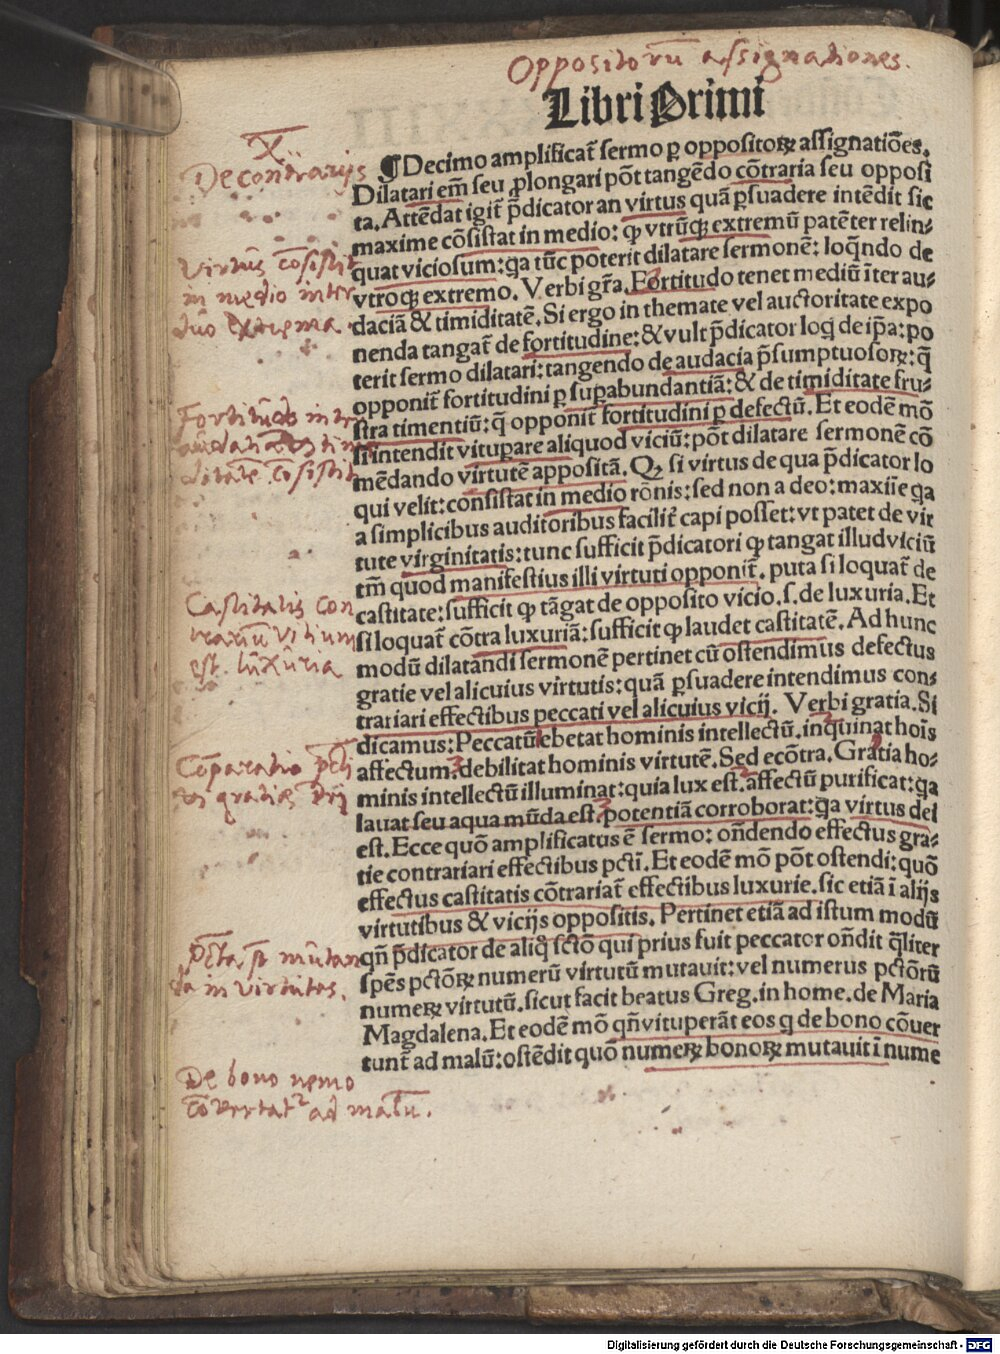 Oppositorū assignationes.
Libri Primi
X
De contrarijs
¶Decimo amplificat̄ sermo ꝑ oppositoꝝ assignatiōes.
Dilatari em̄ seu ꝓlongari pōt tangēdo cōtraria seu opposi
ta. Attēdat igit̄ p̄dicator an virtus quā ꝑsuadere intēdit sic
maxime cōsistat in medio: ꝙ vtrūqꝫ extremū patēter relin-
quat viciosum: q̄a tūc poterit dilatare sermonē: loqn̄do de
vtroqꝫ extremo. Verbi gr̄a. Fortitudo tenet mediū īter au-
daciā & timiditatē. Si ergo in themate vel auctoritate expo
nenda tangat̄ de fortitudine: & vult p̄dicator loq̄ de ip̄a: po
terit sermo dilatari: tangendo de audacia p̄sumptuosoꝝ: q̄
opponit̄ fortitudini ꝑ suꝑabundantiā: & de timiditate fru-
stra timentiū: q̄ opponit̄ fortitudini ꝑ defectū. Et eodē mō
si intendit vitupare aliquod viciū: pōt dilatare sermonē cō
mēdando virtutē appositā. Qꝫ si virtus de qua p̄dicator lo
qui velit: consistat in medio rōnis: sed non a deo: maxīe q̄a
a simplicibus auditoribus facilit̄ capi posset: vt patet de vir
tute virginitatis: tunc sufficit p̄dicatori ꝙ tangat illud viciū
tm̄ quod manifestius illi virtuti opponit̄. puta si loquat̄ de
castitate: sufficit ꝙ tāgat de opposito vicio. s. de luxuria. Et
si loquat̄ cōtra luxuriā: sufficit ꝙ laudet castitatē. Ad hunc
modū dilatandi sermonē pertinet cū ostendimus defectus
gratie vel alicuius virtutis: quā ꝑsuadere intendimus con-
trariari effectibus peccati vel alicuius vicij. Verbi gratia. Si
dicamus: Peccatū ebetat hominis intellectū. inquinat hoīs
affectum. debilitat hominis virtutē. Sed ecōtra. Gratia ho-
minis intellectū illuminat: quia lux est. affectū purificat: q̄a
lauat seu aqua mūda est. potentiā corroborat: q̄a virtus dei
est. Ecce quō amplificatus ē sermo: on̄dendo effectus gra-
tie contrariari effectibus pcti̅. Et eodē mō pōt ostendi: quō
effectus castitatis cōtrariat̄ effectibus luxurie. sic etiā ī alijs
virtutibus & vicijs oppositis. Pertinet etiā ad istum modū
qn̄ p̄dicator de aliq̄ scto̅ qui prius fuit peccator on̄dit q̄liter
spēs pctōꝝ numerū virtutū mutauit: vel numerus pctōrū
numeꝝ virtutū. sicut facit beatus Greg. in home. de Maria
Magdalena. Et eodē mō qn̄ vituperāt eos q̄ de bono cōuer
tunt̄ ad malū: ostēdit quō numeꝝ bonoꝝ mutauit ī nume
Virtus cōsistit
in medio inter
duo extrema.
Castitatis con
trariū vitium
est luxuria
Cōparatio pcti
et gratiae
mutan
da in virtutes.
De bono nemo
cōvertat² ad malū.
Digitalisierung gefördert durch die Deutsche Forschungsgemeinschaft - DFG